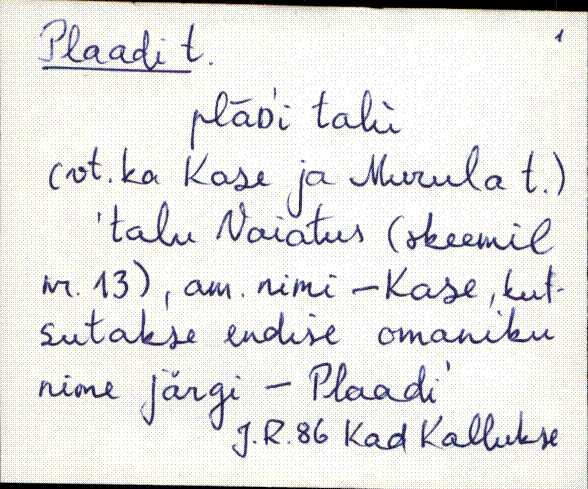 Plaadi t. 1
plāDi talù
(vt. ka Kase ja Murula t.)
'talu Vaiatus (skeemil
nr. 13), am. nimi – Kase, kut-
sutakse endise omaniku
nime järgi – Plaadi'
J.R. 86 Kad Kallukse